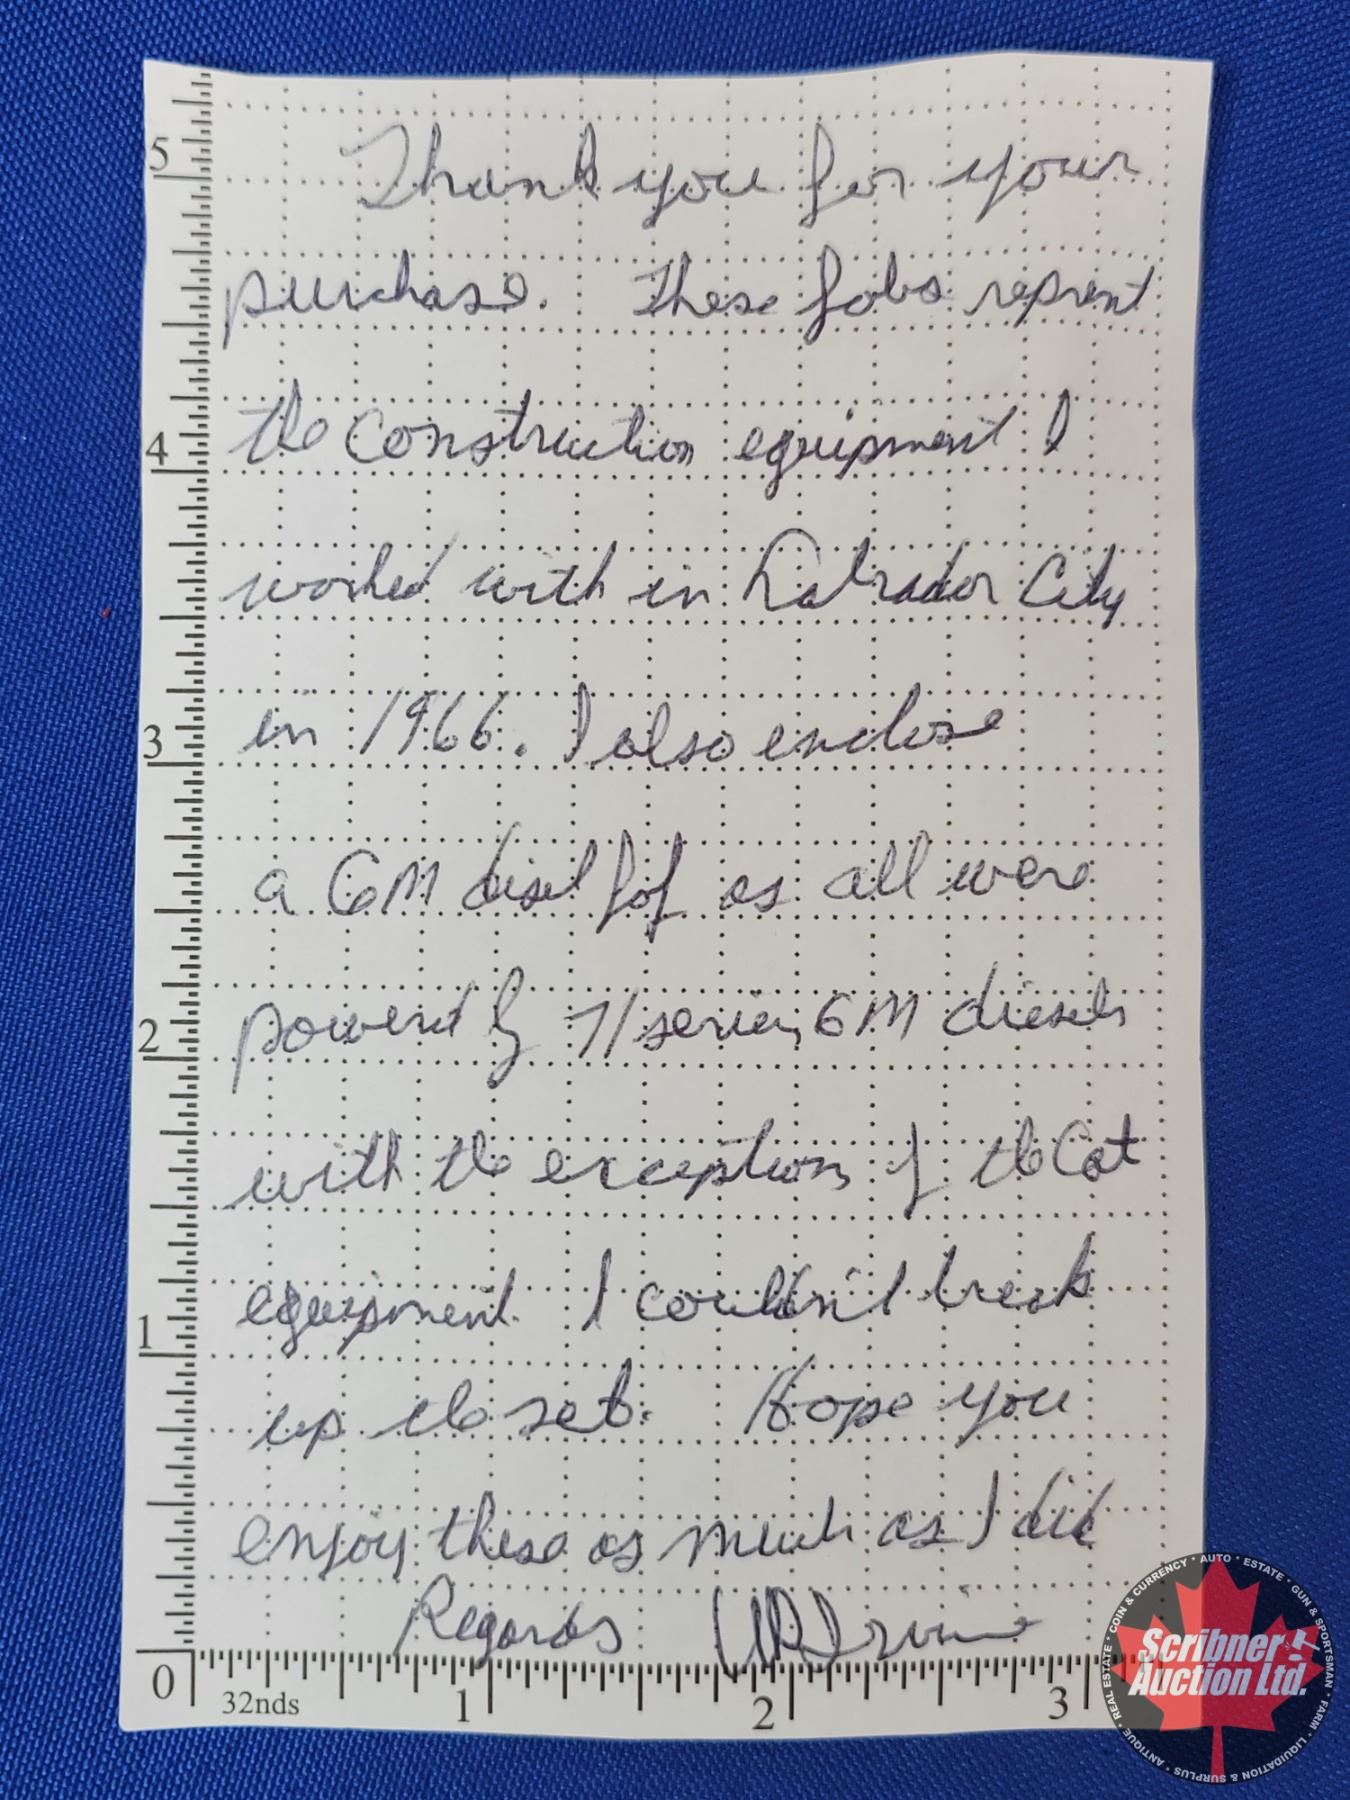 5
Thank you for your
purchase. These fobs reprent
4
the construction equipment I
worked with in Labrador City
in 1966. I also enclose
3
a GM diesel fof as all were
powered by 71 series GM diesels
2
with the exception of the Cat
equipment. I couldn't break
1
up the set. Hope you
enjoy these as much as I did
Regards Irvine
0
32nds
1
2
3
Scribner
Auction Ltd.
REAL ESTATE * COIN & CURRENCY * AUTO * ESTATE * GUN & SPORTSMAN * FARM * LIQUIDATION & SURPLUS * ANTIQUE *